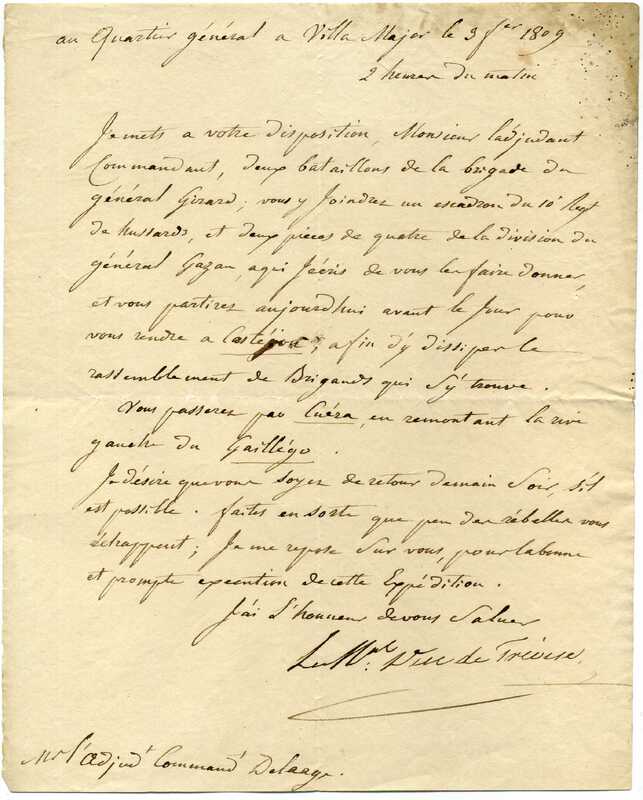 au Quartier général a Villa Major le 3 fer 1809
2 heures du matin
Je mets a votre disposition, Monsieur l'adjudant
Commandant, deux bataillons de la brigade du
général Girard; vous y Joindrez un escadron du 10e Regt
de hussards, et deux pièces de quatre de la division du
général Gazan, a qui J'écris de vous les faire donner,
et vous partirez aujourdhui avant le Jour pour
vous rendre a afin d'y dissiper le
rassemblement de Brigands qui s'y trouve.
Vous passerez par Cuéra, en remontant la rive
gauche du Gaillégo.
Je désire que vous soyez de retour demain Soir, s'il
est possible. faites en sorte que peu des rébelles vous
échappent; Je me repose Sur vous, pour la bonne
et prompte execution de cette Expédition.
J'ai L'honneur de vous Saluer
Le Mal. Duc de Trévise.
Mr l'adjudt Commandt Delaage.